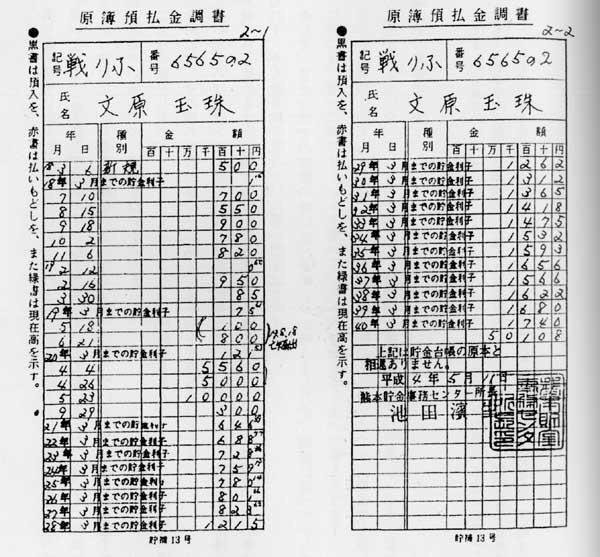 原簿預払金調書
2~1
●黒書は預入を、赤書は払いもどしを、また緑書は現在高を示す。
記号 戦りふ 番号 656592
氏名 文原玉珠
年月日 種別 金額
百十万千百十円
18 3 6 新規 500
18年3月までの貯金利子
7 10 700
8 15 550
9 18 900
10 2 780
11 6 820
19 2 12
2 16 950
3 30 85
19年3月までの貯金利子 75
5 18 100
6 21 800
20年3月までの貯金利子 121
4 4 5560
4 26 5000
5 23 10000
9 29 300
21年3月までの貯金利子 646
22年3月までの貯金利子 688
23年3月までの貯金利子 728
24年3月までの貯金利子 759
25年3月までの貯金利子 780
26年3月までの貯金利子 801
27年3月までの貯金利子 823
28年3月までの貯金利子 1215
貯補13号
原簿預払金調書
2~2
●黒書は預入を、赤書は払いもどしを、また緑書は現在高を示す。
記号 戦りふ 番号 656592
氏名 文原玉珠
年月日 種別 金額
百十万千百十円
29年3月までの貯金利子 1262
30年3月までの貯金利子 1312
31年3月までの貯金利子 1365
32年3月までの貯金利子 1418
33年3月までの貯金利子 1475
34年3月までの貯金利子 1532
35年3月までの貯金利子 1593
36年3月までの貯金利子 1656
37年3月までの貯金利子 1566
38年3月までの貯金利子 1622
39年3月までの貯金利子 1680
40年3月までの貯金利子 1740
50108
上記は貯金台帳の原本と
相違ありません。
平成4年5月11日
熊本貯金事務センター所長
池田濱
貯補13号